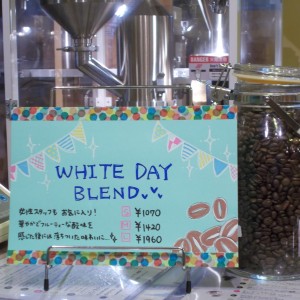 WHITE DAY
BLEND
女性スタッフも お気に入り!
華やかでフルーティーな酸味を
感じた後には 落ちついた味わいに…
¥1070
¥1420
¥1960
DANGER